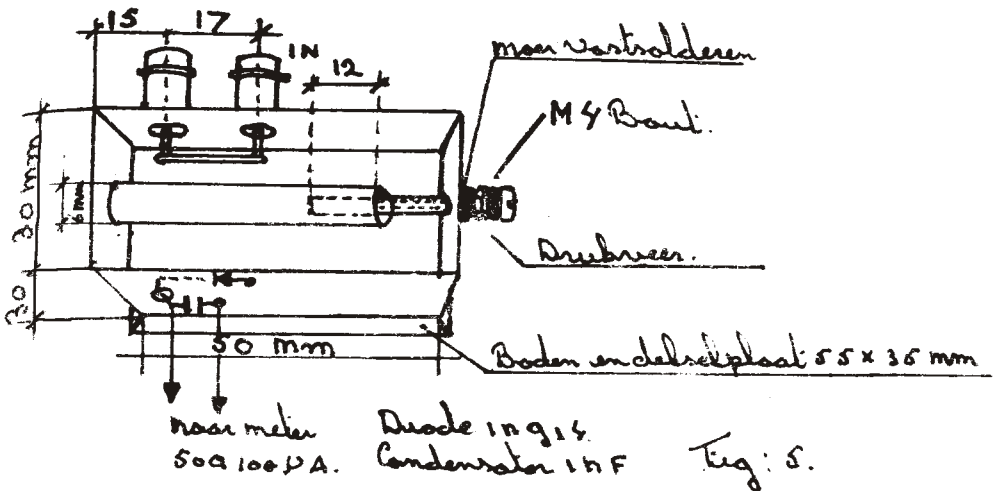 15 17
IN
12
moer vastsolderen
M4 Bout.
30 mm
6 mm
Drukveer.
30
50 mm
Bodem en dekselplaat 55 x 35 mm
naar meter
50a 100 µA.
Diode 1n914
Condensator 1nF
Fig: 5.